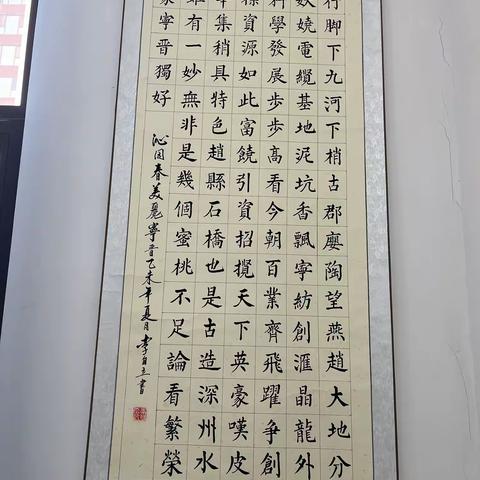 行脚下九河下梢古郡廮陶望燕趙大地分
妖嬈電纜基地泥坑香飄寧紡創滙晶龍外
科學發展步步高看今朝百業齊飛躍争創
資源如此富饒引資招攬天下英豪嘆皮
集稍具特色趙縣石橋也是古造深州水
雖有一妙無非是幾個蜜桃不足論看繁榮
寧晋獨好
沁园春美麗寧晋乙未年夏月李自立書